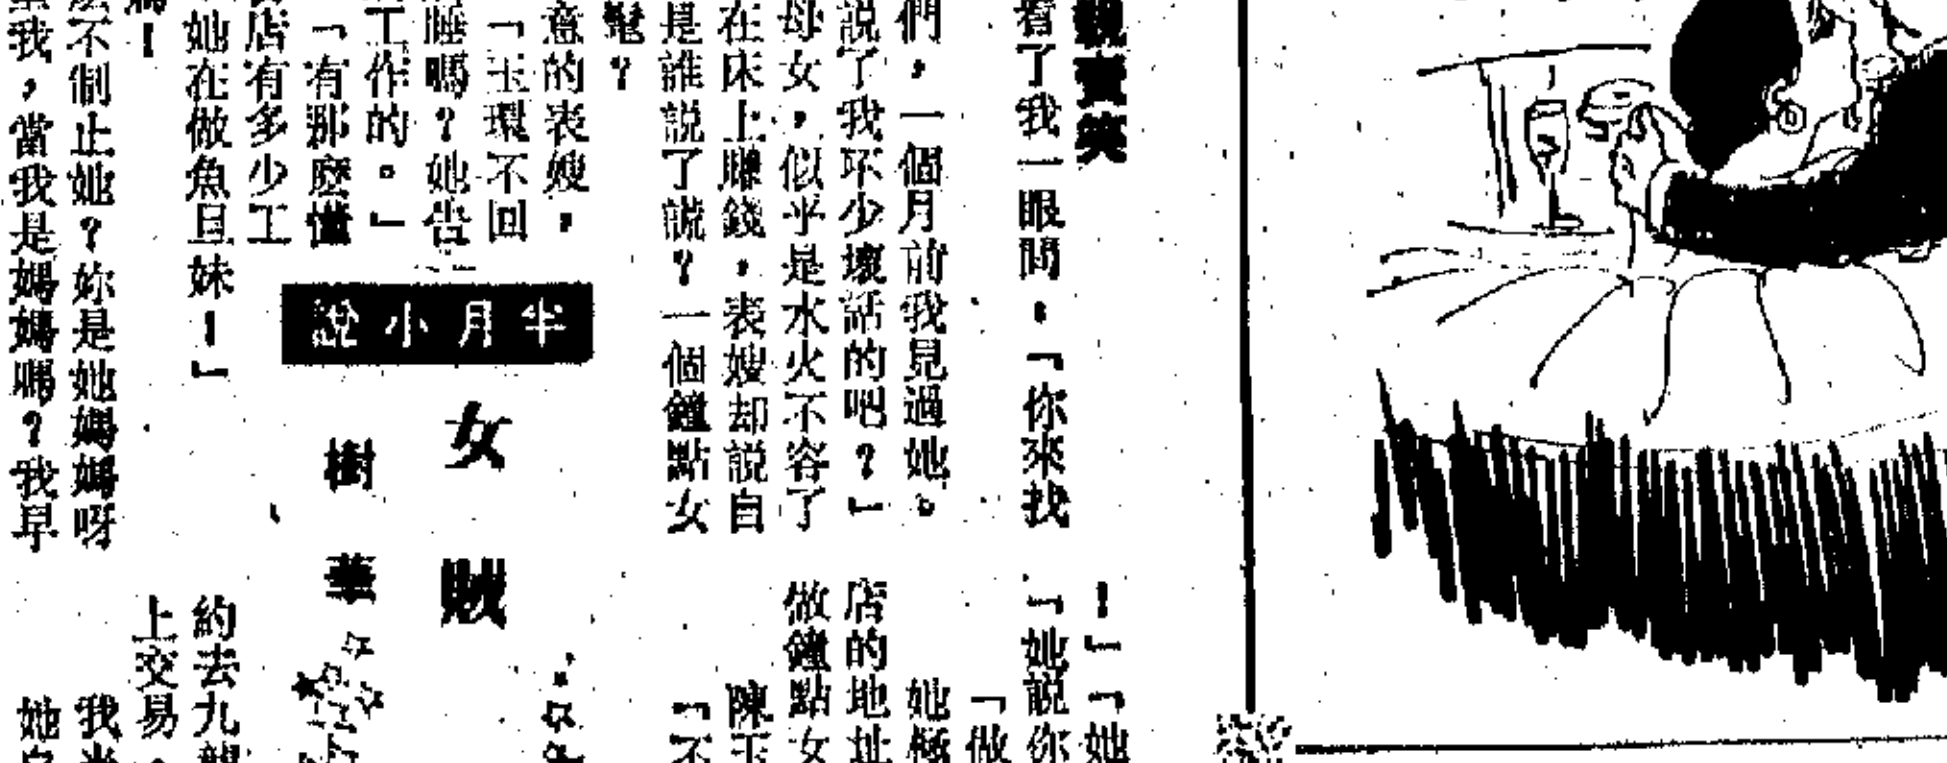 親賣笑
看了我一眼問：「你來找
們，一個月前我見過她。
說了我不少壞話的吧？」
母女，似乎是水火不容了
在床上賺錢，表嫂却說自
是誰說了謊？一個鐘點女
髦？
意的表嫂，
「玉環不回
睡嗎？她告
工作的。」
「有那麼懂
店有多少工
她在做魚旦妹！」
嗎！
麼不制止她？妳是她媽媽呀
我，當我是媽媽嗎？我早
半月小說
女賊
樹華
！」「她
「她說你
「做
她極
店的地址
做鐘點女
陳玉
「不
約去九龍
上交易，
我當
她